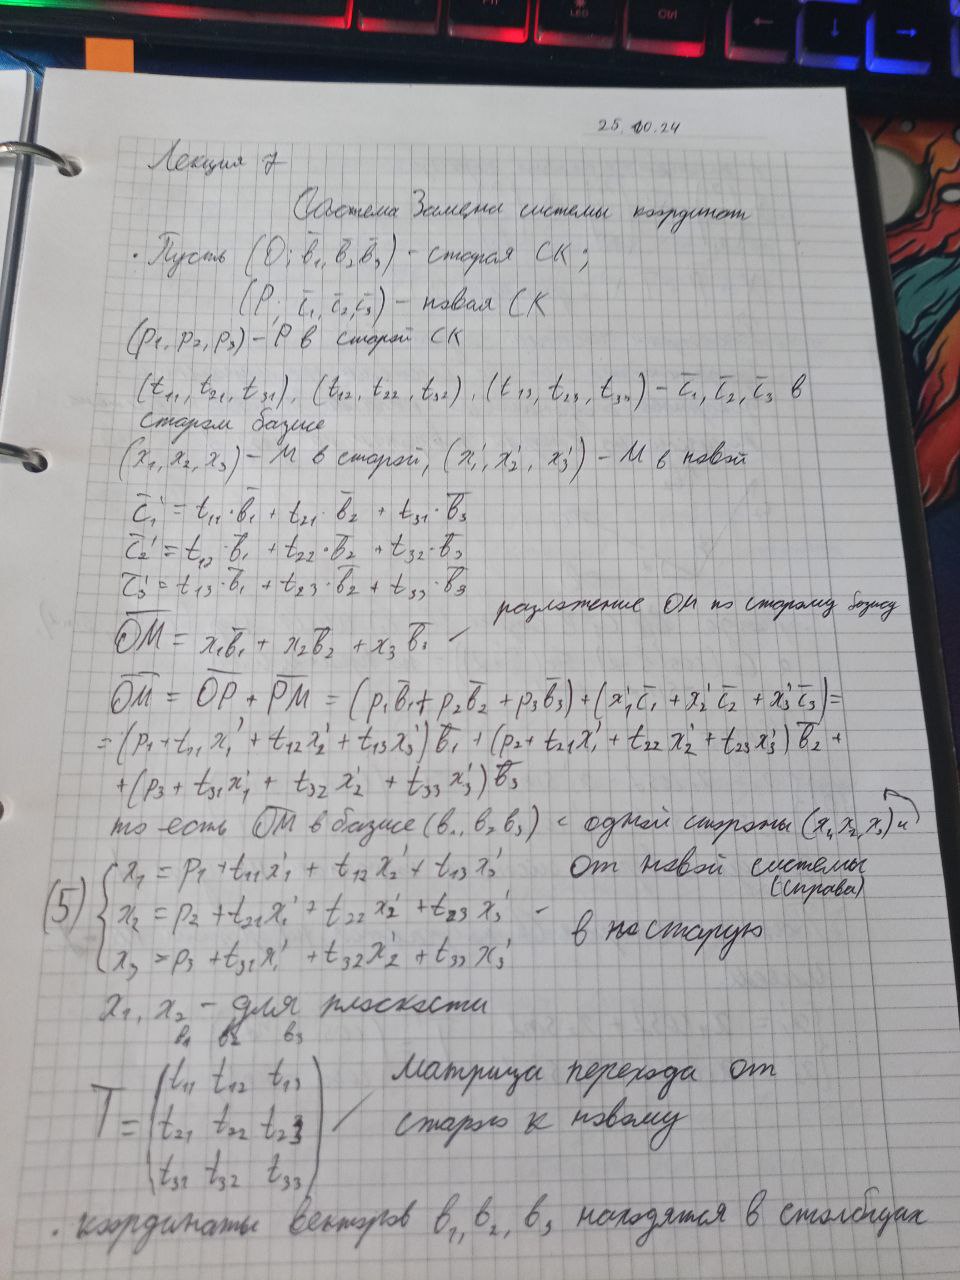 Ctrl
25.10.24
Лекция 7
Система Замена системы координат
· Пусть (O; b̄₁, b̄₂ b̄₃) - старая СК;
(P; c̄₁, c̄₂, c̄₃) - новая СК
(p₁, p₂, p₃) - P в старой СК
(t₁₁, t₂₁, t₃₁), (t₁₂, t₂₂, t₃₂), (t₁₃, t₂₃, t₃₃) - c̄₁, c̄₂, c̄₃ в
старом базисе
(x₁, x₂, x₃) - M в старой, (x₁', x₂', x₃') - M в новой
c̄₁' = t₁₁·b̄₁ + t₂₁·b̄₂ + t₃₁·b̄₃
c̄₂' = t₁₂·b̄₁ + t₂₂·b̄₂ + t₃₂·b̄₃
c̄₃' = t₁₃·b̄₁ + t₂₃·b̄₂ + t₃₃·b̄₃
разложение OM по старому базису
OM = x₁b̄₁ + x₂b̄₂ + x₃b̄₃
OM = OP + PM = (p₁b̄₁ + p₂b̄₂ + p₃b̄₃) + (x₁'c̄₁ + x₂'c̄₂ + x₃'c̄₃) =
= (p₁ + t₁₁x₁' + t₁₂x₂' + t₁₃x₃')b̄₁ + (p₂ + t₂₁x₁' + t₂₂x₂' + t₂₃x₃')b̄₂ +
+ (p₃ + t₃₁x₁' + t₃₂x₂' + t₃₃x₃')b̄₃
то есть OM в базисе (b₁, b₂ b₃) с одной стороны (x₁, x₂, x₃) и
(5) { x₁ = p₁ + t₁₁x₁' + t₁₂x₂' + t₁₃x₃' от новой системы
(справа)
x₂ = p₂ + t₂₁x₁' + t₂₂x₂' + t₂₃x₃' - в старую
x₃ = p₃ + t₃₁x₁' + t₃₂x₂' + t₃₃x₃'
x₁, x₂ - для плоскости
b₁ b₂ b₃
T = (t₁₁ t₁₂ t₁₃ Матрица перехода от
t₂₁ t₂₂ t₂₃ старого к новому
t₃₁ t₃₂ t₃₃)
· координаты векторов b₁, b₂, b₃ находятся в столбцах